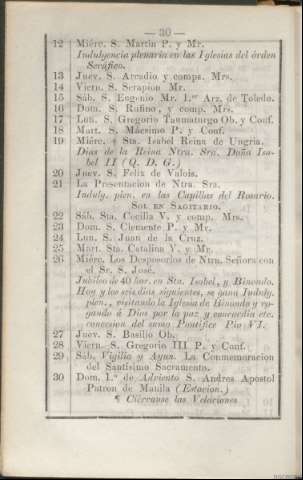 — 30 —
12 Miérc. S. Martin P. y Mr.
Indulgencia plenaria en las Iglesias del órden
Seráfico.
13 Juev. S. Arcadio y comps. Mrs.
14 Viern. S. Serapion Mr.
15 Sáb. S. Eugenio Mr. 1.er Arz. de Toledo.
16 Dom. S. Rufino, y comp. Mrs.
17 Lun. S. Gregorio Taumaturgo Ob. y Conf.
18 Mart. S. Mácsimo P. y Conf.
19 Miérc. Sta. Isabel Reina de Ungria.
Dias de la Reina Ntra. Sra. Doña Isa-
bel II (Q. D. G.)
20 Juev. S. Felix de Valois.
21 La Presentacion de Ntra. Sra.
Indulg. plen. en las Capillas del Rosario.
SOL EN SAGITARIO.
22 Sáb. Sta. Cecilia V. y comp. Mrs.
23 Dom. S. Clemente P. y Mr.
24 Lun. S. Juan de la Cruz.
25 Mart. Sta. Catalina V. y Mr.
26 Miérc. Los Desposorios de Ntra. Señora con
el Sr. S. José.
Jubileo de 40 hor. en Sta. Isabel, y Binondo.
Hoy y los seis dias siguientes, se gana Indulg.
plen., visitando la Iglesia de Binondo y ro-
gando á Dios por la paz y concordia etc.
concesion del sumo Pontífice Pio VI.
27 Juev. S. Basilio Ob.
28 Viern. S. Gregorio III P. y Conf.
29 Sáb. Vigilia y Ayun. La Conmemoracion
del Santísimo Sacramento.
30 Dom. 1.º de Adviento S. Andres Apostol
Patron de Manila (Estacion.)
¶ Ciérranse las Velaciones